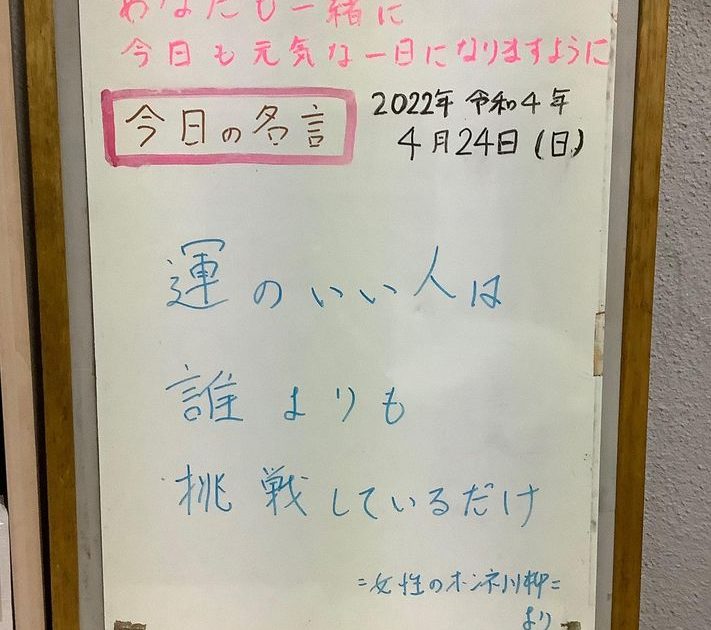 あなたも一緒に
今日も元気な一日になりますように
今日の名言
2022年 令和4年
4月24日(日)
運のいい人は
誰よりも
挑戦しているだけ
=女性のホンネ川柳=
より